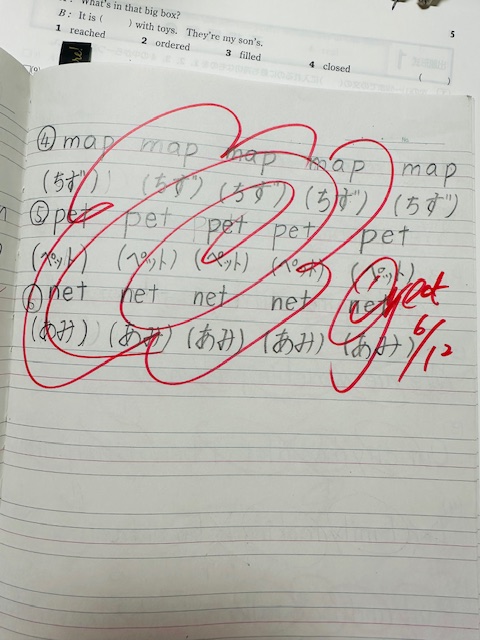 What's in that big box?
B: It is ( ) with toys. They're my son's.
1 reached 2 ordered 3 filled 4 closed
( )
5
④ map map map map map
(ちず) (ちず) (ちず) (ちず) (ちず)
⑤ pet pet pet pet pet
(ペット) (ペット) (ペット) (ペット) (ペット)
⑥ net net net net net
(あみ) (あみ) (あみ) (あみ) (あみ)
Great
6/12